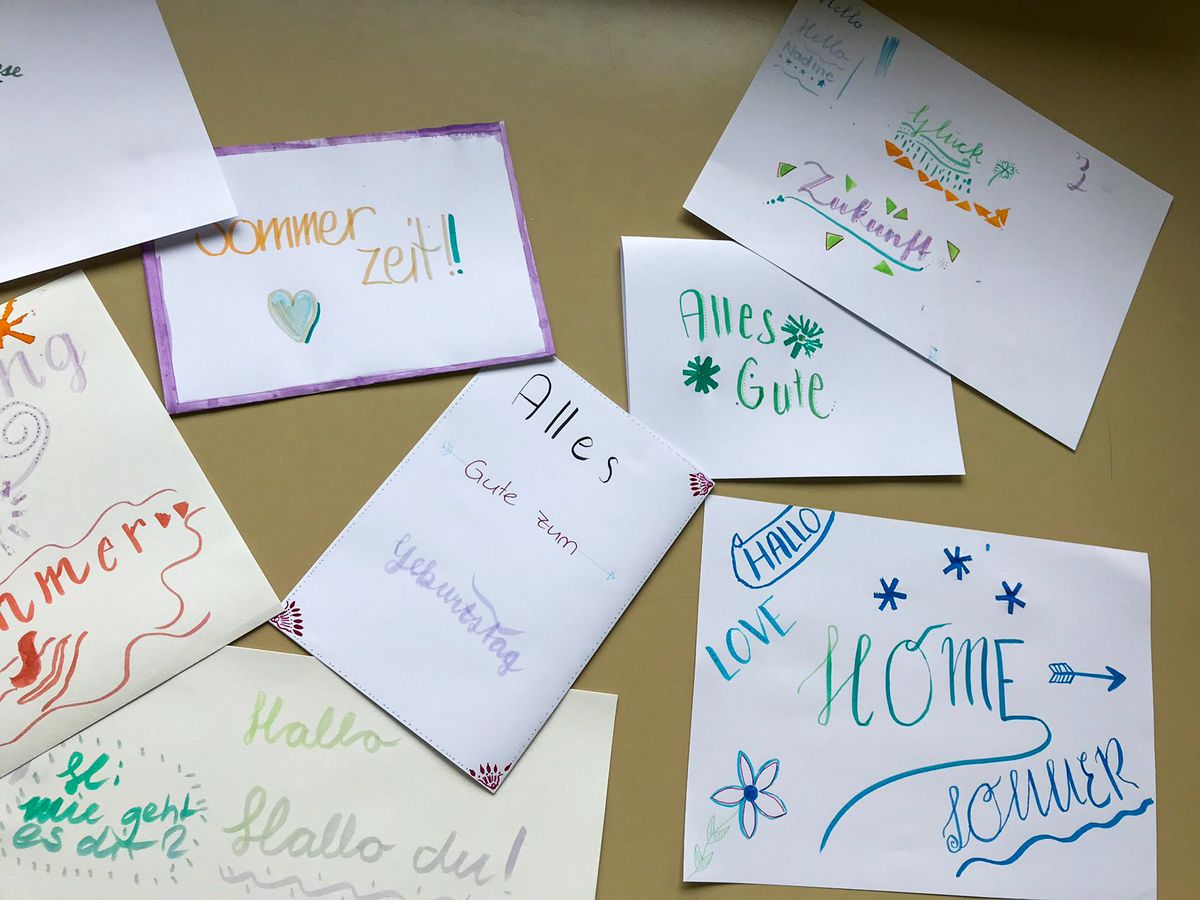 Hello
Hello
Nadine
Glück
Zukunft
3
Sommer
zeit!!
Alles
Gute
Alles
Gute zum
Geburtstag
HALLO
LOVE
HOME
SOMMER
Hallo
Hi
wie geht
es dir?
Hallo du!